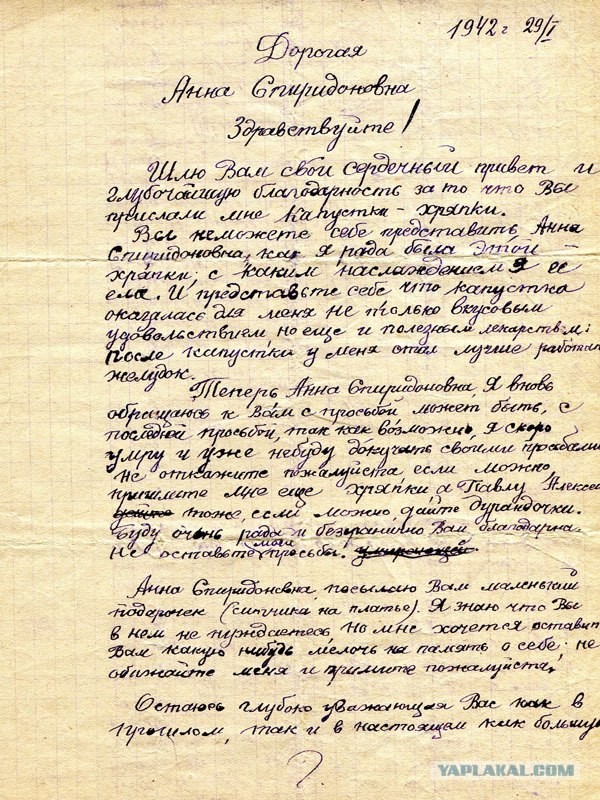 1942 г 29/I
Дорогая
Анна Спиридоновна
Здравствуйте!
Шлю Вам свой сердечный привет и
глубочайшую благодарность за то что Вы
прислали мне капустки - хряпки.
Вы неможете себе представить Анна
Спиридоновна, как я рада была этой
хряпки; с каким наслаждением я ее
ела. И представьте себе что капустка
оказалась для меня не только вкусовым
удовольствием но еще и полезным лекарством:
после капустки у меня стал лучше работат
желудок.
Теперь Анна Спиридоновна, Я вновь
обращаюсь к Вам с просьбой может быть, с
последней просьбой, так как возможно, я скоро
умру и уже небуду докучать своими просьбами
Не откажите пожалуйста если можно,
пришлите мне еще хряпки а Павлу Алексеи
тоже, если можно дайте дурандочки.
Буду очень рада и безгранично Вам благодарна.
Не оставьте мои просьбы. умирающей.
Анна Спиридоновна, посылаю Вам маленький
подарочек (ситчика на платье). Я знаю что Вы
в нем не нуждаетесь, но мне хочется оставит
Вам какую нибудь мелочь на память о себе; не
обижайте меня и примите пожалуйста,
Остаюсь глубоко уважающая Вас как в
прошлом, так и в настоящем как большую
YAPLAKAL.COM